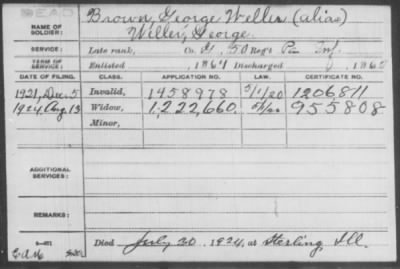 DEAD
NAME OF SOLDIER: Brown, George Weller (alias)
Weller, George.
SERVICE: Late rank, Co. G, 50 Reg't Pa Inf.
TERM OF SERVICE: Enlisted , 1864 Discharged , 1865
DATE OF FILING. CLASS. APPLICATION NO. LAW. CERTIFICATE NO.
1921, Dec. 5 Invalid, 1458978 5/1/20 1206811
1924 Aug 13 Widow, 1,222,660. 5/1/20 955808
Minor,
ADDITIONAL SERVICES:
REMARKS:
Died July 20, 1924, at Sterling, Ill.